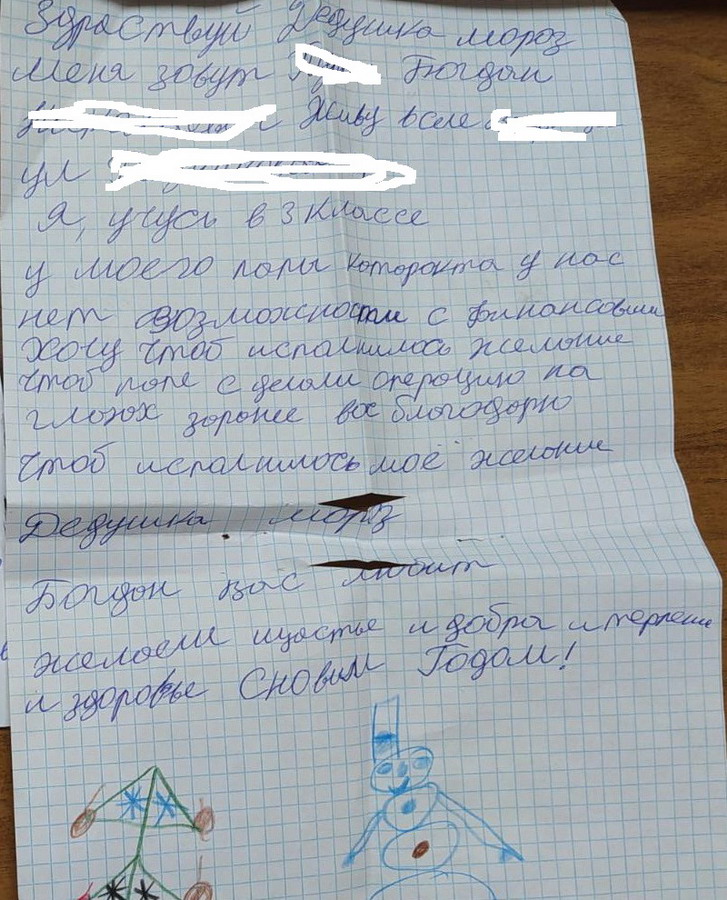 Здраствуй Дедушка мороз
Меня зовут Богдан
Живу в селе
ул
Я, учусь в 3 классе
у моего папы каторокта у нас
нет возможностти с финансовыи
хочу чтоб испалнилось желоние
чтоб папе с делали операцию на
глазах зоронее вас благодорю
чтоб испалнилось моё желоние
Дедушка мороз
Богдан вас любит
желоем щастье и добра и терпени
и здоровье Сновым Годом!